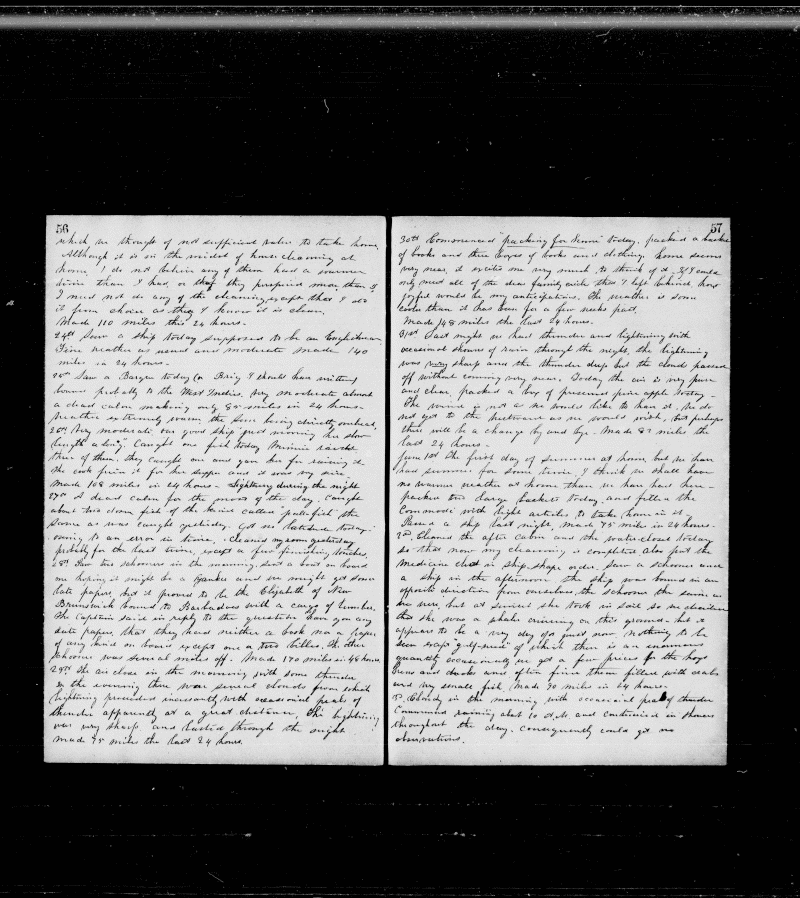 56
which we thought of not sufficient value to take home,
Although it is in the midst of housecleaning at
home, I do not believe any of them had a warmer
time than I had, or that they prefered more than I
I need not do any of the cleaning except that I do
it from choice as they I know it is clean,
Made 110 miles this 24 hours.
24th Saw a Ship today supposed to be an Englishman,
Fine weather as usual and moderate made 140
miles in 24 hours.
25th Saw a Barque today (or Brig I should have written)
bound probably to the West Indies, very moderate almost
a dead calm making only 85 miles in 24 hours
Weather extremely warm, the Sun being directly overhead,
26th Very moderate our good ship just moving "her slow
length along." Caught one fish today Minnie
ther of them, they caught one and gave her for
the cook fried it for her supper and it was very nice
Made 108 miles in 24 hours - Lightning during the night
27th A dead calm for the most of the day. Caught
about two dozen fish of the kind called "pilot-fish" the
same as was caught yesterday. Got no latitude today-
owing to an error in time, cleaned my room yesterday
probably for the last time, except a few finishing touches,
28th Saw two schooners in the morning, sent a boat on board
one hoping it might be a Yankee and we might get some
late papers, but it proved to be the Elizabeth of New
Brunswick bound to Barbadoes with a cargo of lumber,
The Captain said in reply to the question have you any
late papers, that they had neither a book nor a paper
of any kind on board except one or two bibles, The other
schooner was several miles off. Made 170 miles in 48 hours,
29th The air close in the morning with some thunder
in the evening there was several clouds from which
lightning proceeded incessantly with occasional peals of
thunder apparently at a great distance, the lightning
was very sharp and lasted through the night
Made 75 miles the last 24 hours.
57
30th Commenced "packing for home" today, packed a basket
of books and three boxes of books and clothing. home seems
very near, it excites me very much to think of it, & if I could
only meet all of the dear family circle that I left behind, how
joyful would be my anticipations. The weather is some
cooler than it has been for a few weeks past,
Made 148 miles the last 24 hours.
31st Last night we had thunder and lightning with
occasional showers of rain through the night, the lightning
was very sharp and the thunder deep but the cloud passed
off without coming very near. Today the air is very pure
and clear, packed a box of preserved pine apple today-
The wind is not as we would like to have it, we do
not get to the westward as we would wish, but perhaps
there will be a change by and bye - Made 87 miles the
last 24 hours -
June 1st The first day of summer at home but we have
had summer for some time, I think we shall have
no warmer weather at home than we have had here -
packed two large baskets today, and filled the
Commodi with light articles to take home in it.
Passed a ship last night, Made 75 miles in 24 hours -
2d Cleaned the after cabin and the water-closet today
so that now my cleaning is completed also put the
Medicine chest in ship-shape order. Saw a schooner and
a ship in the afternoon the ship was bound in an
opposite direction from ourselves the schooner the same as
we were, but at sunset she took in sail so we
that she was a whaler cruising on this ground. but it
appears to be a very dry one just now, nothing to be
seen except "gulf-weed" of which there is an enormous
quantity occasionally we get a few pieces for the hogs
hens and ducks and often find them filled with crabs
and very small fish, Made 90 miles in 24 hours
3d Cloudy in the morning with occasional peals of thunder
Commenced raining about 10 A.M. and continued in showers
throughout the day. consequently could get no
observations.